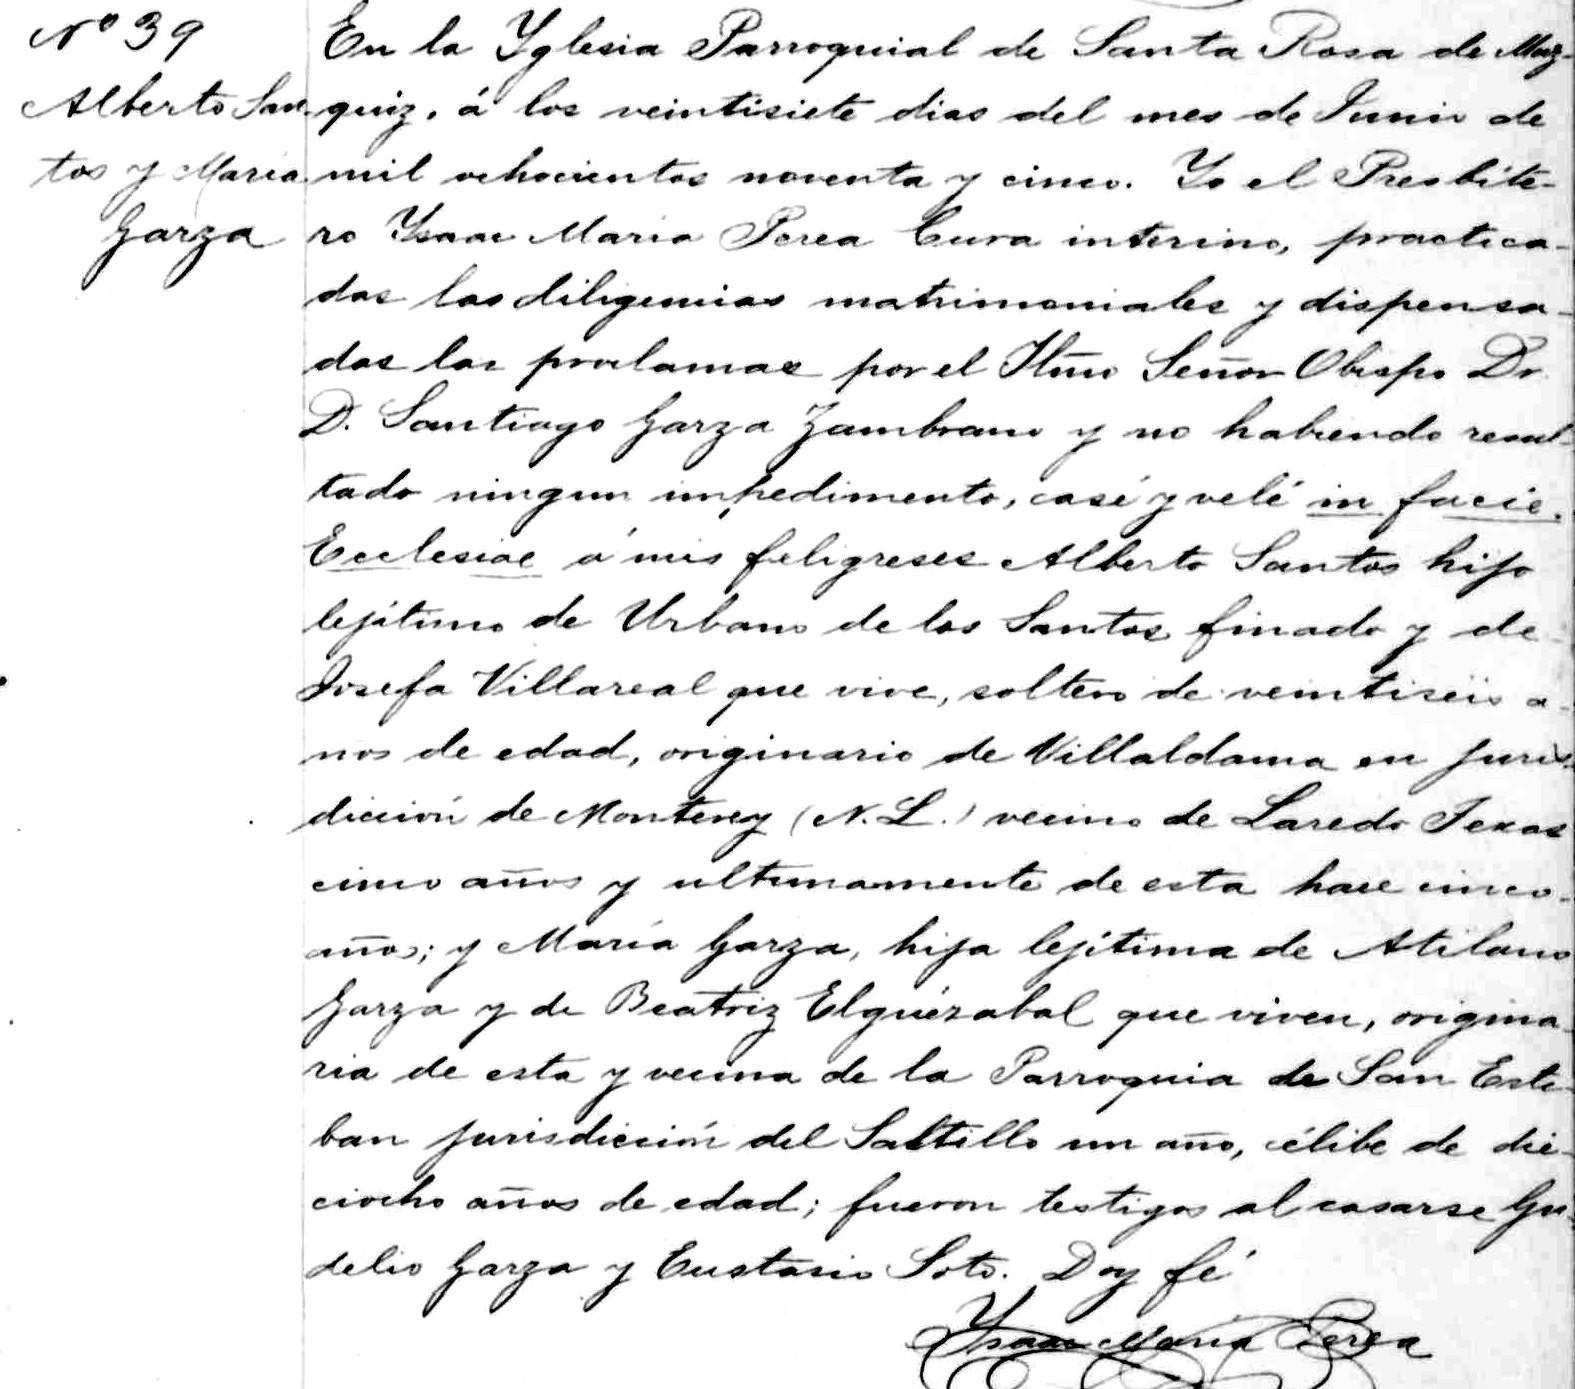 Nº 39
Alberto San-
tos y María
Garza
En la Yglesia Parroquial de Santa Rosa de Muz-
quiz, á los veintisiete dias del mes de Junio de
mil ochocientos noventa y cinco. Yo el Presbite-
ro Ysaac María Perea Cura interino, practica-
das las diligencias matrimoniales y dispensa-
das las proclamas por el Ilmo Señor Obispo Dr
D. Santiago Garza Zambrano y no habiendo resul-
tado ningun impedimento, casé y velé in facie
Ecclesiae á mis feligreses Alberto Santos hijo
lejítimo de Urbano de los Santos finado y de
Josefa Villareal que vive, soltero de veintiseis a-
nos de edad, originario de Villaldama en juris-
dicción de Monterey (N. L.) vecino de Laredo Texas
cinco años y ultimamente de esta hace cinco
años; y María Garza, hija lejítima de Atilano
Garza y de Beatriz Elguézabal que viven, origina-
ria de esta y vecina de la Parroquia de San Este-
ban jurisdicción del Saltillo un año, célibe de die-
ciocho años de edad; fueron testigos al casarse Gu-
delio Garza y Eustasio Soto. Doy fé
Ysaac María Perea